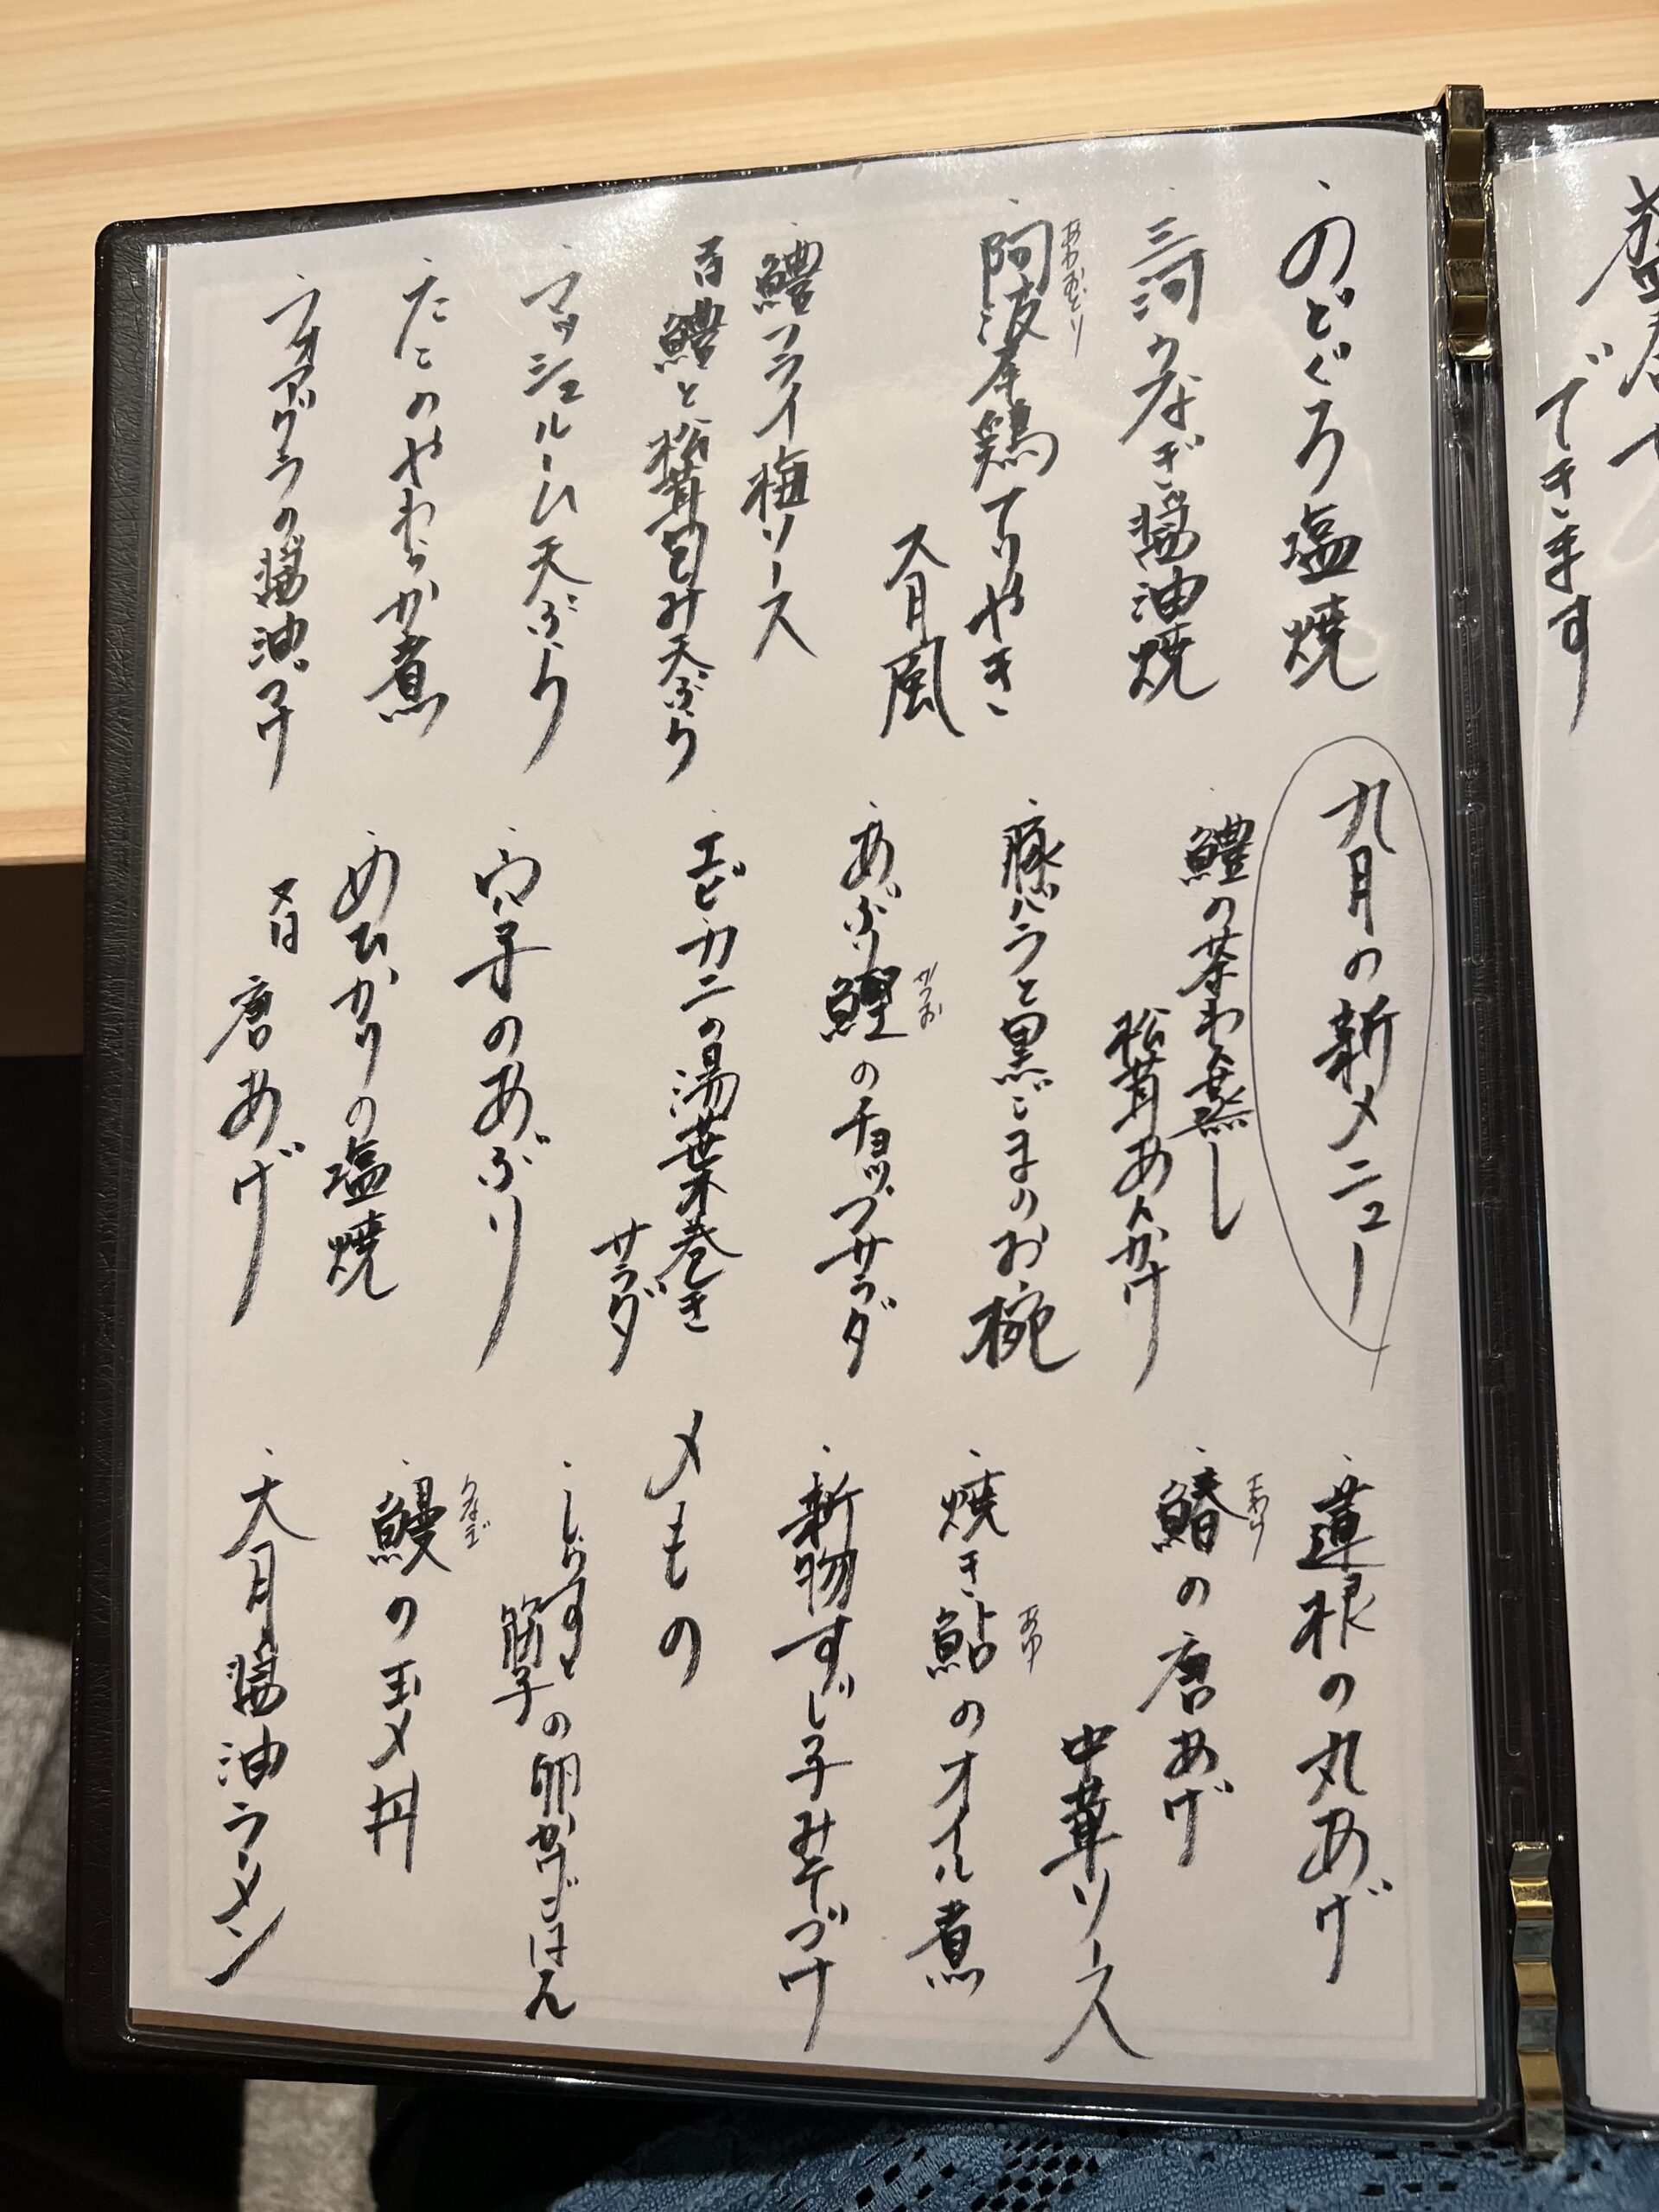 できます
のどぐろ塩焼
三河うなぎ醤油焼
あわおどり
阿波尾鶏てりやき
大月風
鱧フライ梅ソース
又は
鱧と松茸包み天ぷら
マッシュルーム天ぷら
たこのやわらか煮
フォアグラの醤油づけ
九月の新メニュー
鱧の茶わん蒸し
松茸あんかけ
豚バラと黒ごまのお椀
かつお
あぶり鰹のチョップサラダ
エビカニの湯葉巻き
サラダ
穴子のあぶり
めひかりの塩焼
又は
唐あげ
蓮根の丸あげ
さわら
鰆の唐あげ
中華ソース
あゆ
焼き鮎のオイル煮
新物すじ子みそづけ
〆もの
しらすと
筋子の卵かけごはん
うなぎ
鰻の玉〆丼
大月醤油ラーメン